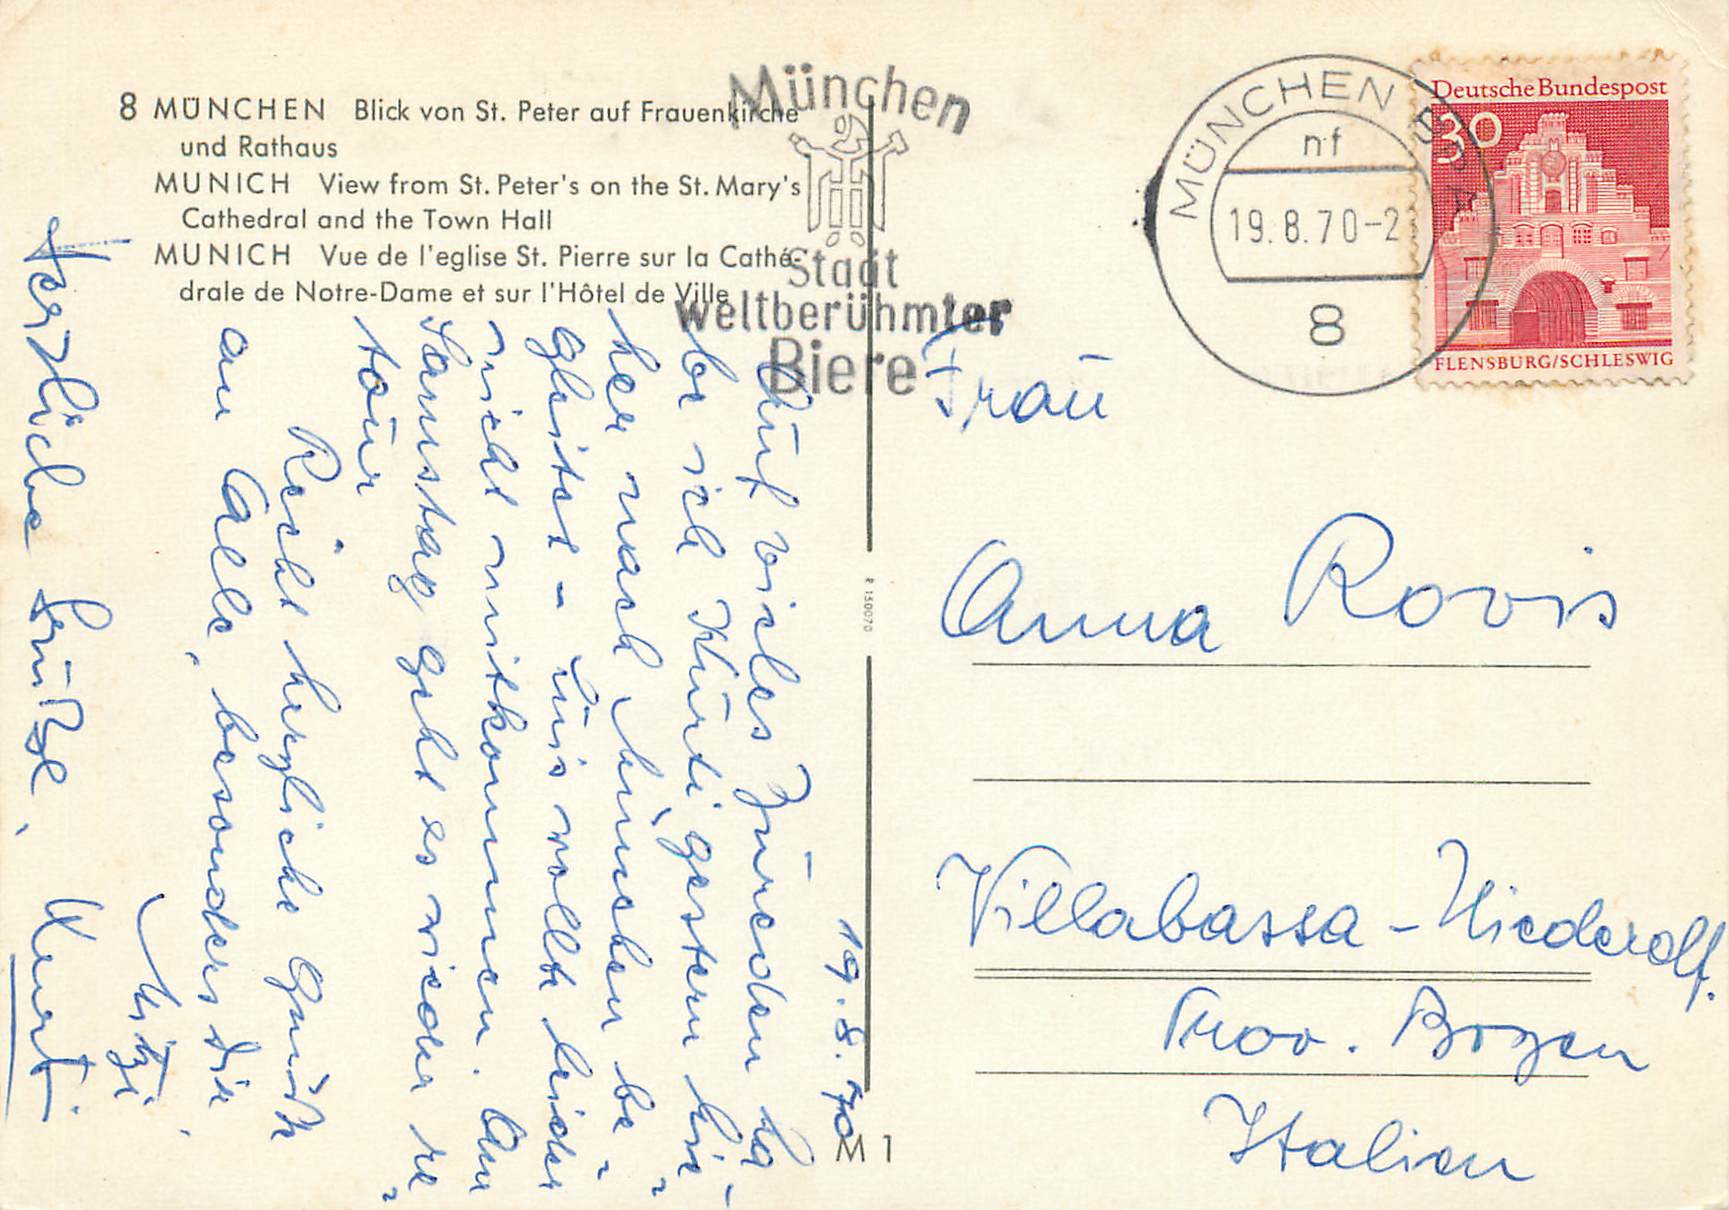 8 MÜNCHEN Blick von St. Peter auf Frauenkirche
und Rathaus
MUNICH View from St. Peter's on the St. Mary's
Cathedral and the Town Hall
MUNICH Vue de l'eglise St. Pierre sur la Cathé-
drale de Notre-Dame et sur l'Hôtel de Ville
München
Stadt
weltberühmter
Biere
MÜNCHEN BPA
nf
19.8.70-2
8
Deutsche Bundespost
30
FLENSBURG/SCHLESWIG
19.8.70
Auf vieles Zureden ha-
be ich Kurti gestern hie-
her nach München be-
gleitet - Luis wollte leider
nicht mitkommen. Am
Samstag geht es wieder re-
tour
Recht herzliche Grüße
an Alle, besonders die
Mitzi
Herzliche Grüße,
Kurt.
R 150070
M 1
Frau
Anna Rovis
Villabassa - Niederdf.
Prov. Bozen
Italien